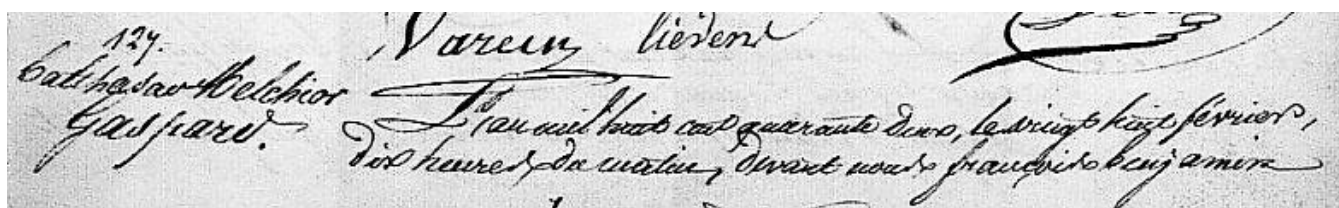 127.
Balthasar Melchior
Gaspard.
Varein liévens
L'an mil huit cent quarante deux, le vingt huit février,
dix heures du matin, devant nous françois benjamin